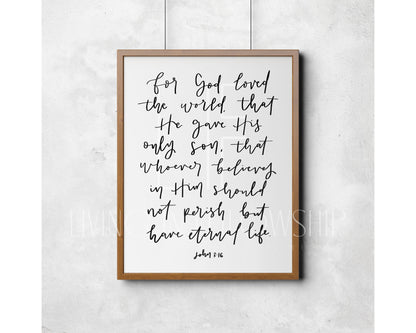 For God loved
the world, that
He gave His
only son, that
whoever believes
in Him should
not perish but
have eternal life.
John 3:16